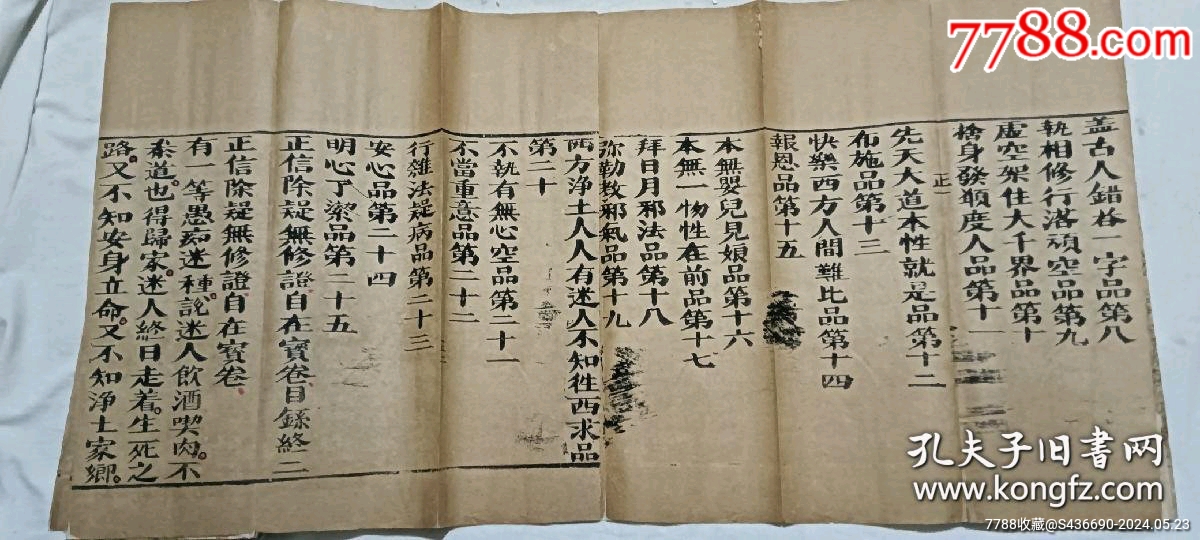 7788.com
蓋古人錯答一字品第八
執相修行落頑空品第九
虛空架住大千界品第十
捨身發願度人品第十一
正
先天大道本性就是品第十二
布施品第十三
快樂西方人間難比品第十四
報恩品第十五
本無嬰兒見娘品第十六
本無一物性在前品第十七
拜日月邪法品第十八
弥勒教邪氣品第十九
西方淨土人人有迷人不知徃西求品
第二十
不執有無心空品第二十一
不當重意品第二十二
行雜法疑病品第二十三
安心品第二十四
明心了潔品第二十五
正信除疑無修證自在寶卷目錄終二
正信除疑無修證自在寳卷
有一等愚痴迷種。說迷人飲酒喫肉。不
叅道也。得歸家。迷人終日走着。生死之
路。又不知安身立命。又不知淨土家鄉。
孔夫子旧書网
www.kongfz.com
7788收藏@S436690-2024.05.23